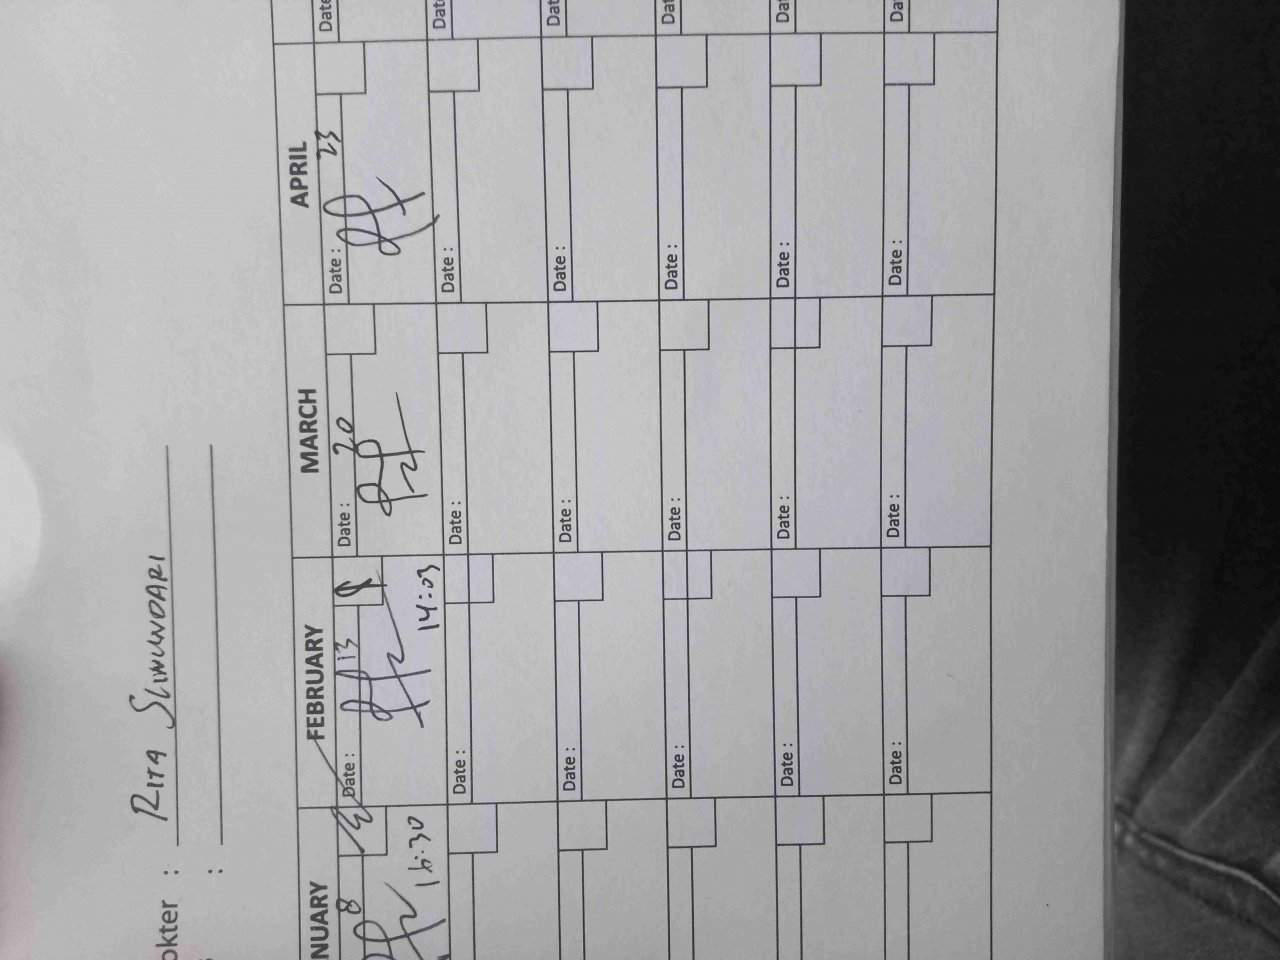 okter : RITA
:
NUARY FEBRUARY MARCH APRIL
8 Date : 13 Date : 20 Date : 23 Date
16:30 14:03
Date : Date : Date : Date
Date : Date : Date : Date
Date : Date : Date : Dat
Date : Date : Date : Dat
Date : Date : Date : Da